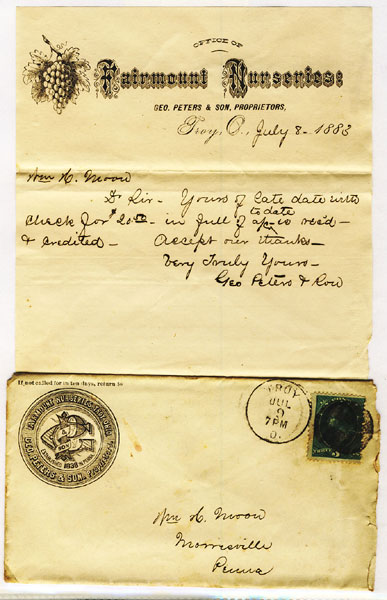 OFFICE OF
Fairmount Nurseries:
GEO. PETERS & SON, PROPRIETORS,
Troy, O., July 8 - 1883
Wm H. Moon
Dr Sir - Yours of late date with
to date
check for $20.00 - in full of a/c - rec'd -
& credited - Accept our thanks -
Very Truly Yours -
Geo Peters & Son
If not called for in ten days, return to
FAIRMOUNT NURSERIES
GEO. PETERS & SON, PROPRIETORS
TROY
JUL
9
7PM
O.
Wm H. Moon
Morrisville
Penna